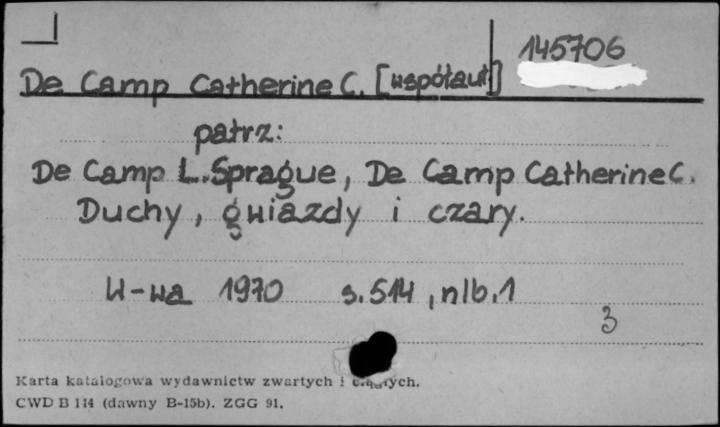 145706
De Camp Catherine C. [współaut]
patrz:
De Camp L. Sprague, De Camp Catherine C.
Duchy, gwiazdy i czary.
W-wa 1970 s. 514, nlb. 1
3
Karta katalogowa wydawnictw zwartych i ciągłych.
CWD B 114 (dawny B-15b). ZGG 91.